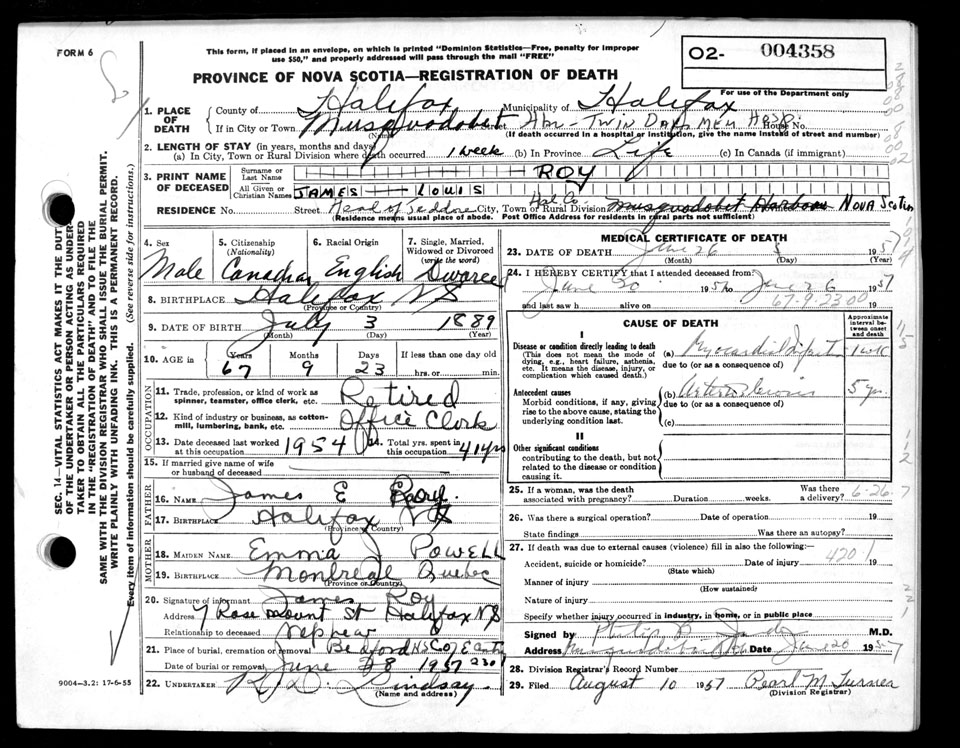 FORM 6
This form, if placed in an envelope, on which is printed "Dominion Statistics—Free, penalty for improper
use $50," and properly addressed will pass through the mail "FREE"
02- 004358
For use of the Department only
PROVINCE OF NOVA SCOTIA—REGISTRATION OF DEATH
1. PLACE OF DEATH
County of Halifax Municipality of Halifax
If in City or Town Musquodoboit Street Hbr - TWIN OAKS MEM HOSP. House No.
(Name) (If death occurred in a hospital or institution, give the name instead of street and number)
2. LENGTH OF STAY (in years, months and days)
(a) In City, Town or Rural Division where death occurred 1 week (b) In Province Life (c) In Canada (if immigrant)
3. PRINT NAME OF DECEASED
Surname or Last Name ROY
All Given or Christian Names JAMES LOUIS
RESIDENCE No. Street Head of Jeddore City, Town or Rural Division Hfx Co. Musquodoboit Harbour NOVA SCOTIA
(Residence means usual place of abode. Post Office Address for residents in rural parts not sufficient)
4. Sex Male
5. Citizenship (Nationality) Canadian
6. Racial Origin English
7. Single, Married, Widowed or Divorced (write the word) Divorced
8. BIRTHPLACE Halifax NS
(Province or Country)
9. DATE OF BIRTH July 3 1889
(Month) (Day) (Year)
10. AGE in Years Months Days If less than one day old
67 9 23 hrs. or min.
OCCUPATION
11. Trade, profession, or kind of work as spinner, teamster, office clerk, etc. Retired
12. Kind of industry or business, as cotton-mill, lumbering, bank, etc. Office Clerk
13. Date deceased last worked at this occupation 1954 14. Total yrs. spent in this occupation 41 yrs
15. If married give name of wife or husband of deceased
FATHER
16. NAME James E Roy
17. BIRTHPLACE Halifax NS
(Province or Country)
MOTHER
18. MAIDEN NAME Emma J POWELL
19. BIRTHPLACE Montreal Quebec
(Province or Country)
20. Signature of informant James Roy
Address 7 Rosemount St Halifax NS
Relationship to deceased Nephew
21. Place of burial, cremation or removal Bedford NS
Date of burial or removal June 28 1957
22. UNDERTAKER Lindsay
(Name and address)
9004-3.2: 17-6-55
MEDICAL CERTIFICATE OF DEATH
23. DATE OF DEATH June 26 1957
(Month) (Day) (Year)
24. I HEREBY CERTIFY that I attended deceased from:
June 20 195 to June 26 1957
and last saw h alive on 19
67-9-23 00
CAUSE OF DEATH
Approximate interval between onset and death
I
Disease or condition directly leading to death
(This does not mean the mode of dying, e.g., heart failure, asthenia, etc. It means the disease, injury, or complication which caused death.)
(a) Myocardial Infarct 1 wk
due to (or as a consequence of)
Antecedent causes
Morbid conditions, if any, giving rise to the above cause, stating the underlying condition last.
(b) Arteriosclerosis 5 yr.
due to (or as a consequence of)
(c)
II
Other significant conditions
contributing to the death, but not related to the disease or condition causing it.
25. If a woman, was the death associated with pregnancy? Duration weeks. Was there a delivery? 6-26-7
26. Was there a surgical operation? Date of operation 19
State findings Was there an autopsy?
27. If death was due to external causes (violence) fill in also the following:—
Accident, suicide or homicide? Date of injury 420.1 19
(State which)
Manner of injury
(How sustained)
Nature of injury
Specify whether injury occurred in industry, in home, or in public place
Signed by Philip M.D.
Address Date 20 1957
28. Division Registrar's Record Number
29. Filed August 10 1957 Pearl M Turner
(Division Registrar)
SEC. 14—VITAL STATISTICS ACT MAKES IT THE DUTY
OF THE UNDERTAKER OR PERSON ACTING AS UNDER-
TAKER TO OBTAIN ALL THE PARTICULARS REQUIRED
IN THE "REGISTRATION OF DEATH" AND TO FILE THE
SAME WITH THE DIVISION REGISTRAR WHO SHALL ISSUE THE BURIAL PERMIT.
WRITE PLAINLY WITH UNFADING INK. THIS IS A PERMANENT RECORD.
Every item of information should be carefully supplied. (See reverse side for instructions.)